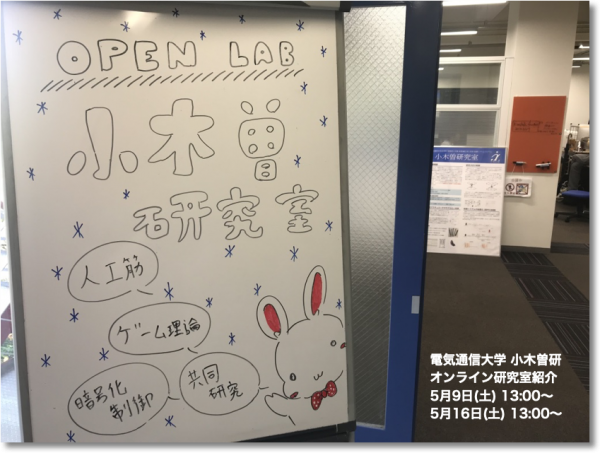 OPEN LAB
小木曽
研究室
人工筋
ゲーム理論
暗号化
制御
共同
研究
小木曽研究室
電気通信大学 小木曽研
オンライン研究室紹介
5月9日(土) 13:00〜
5月16日(土) 13:00〜